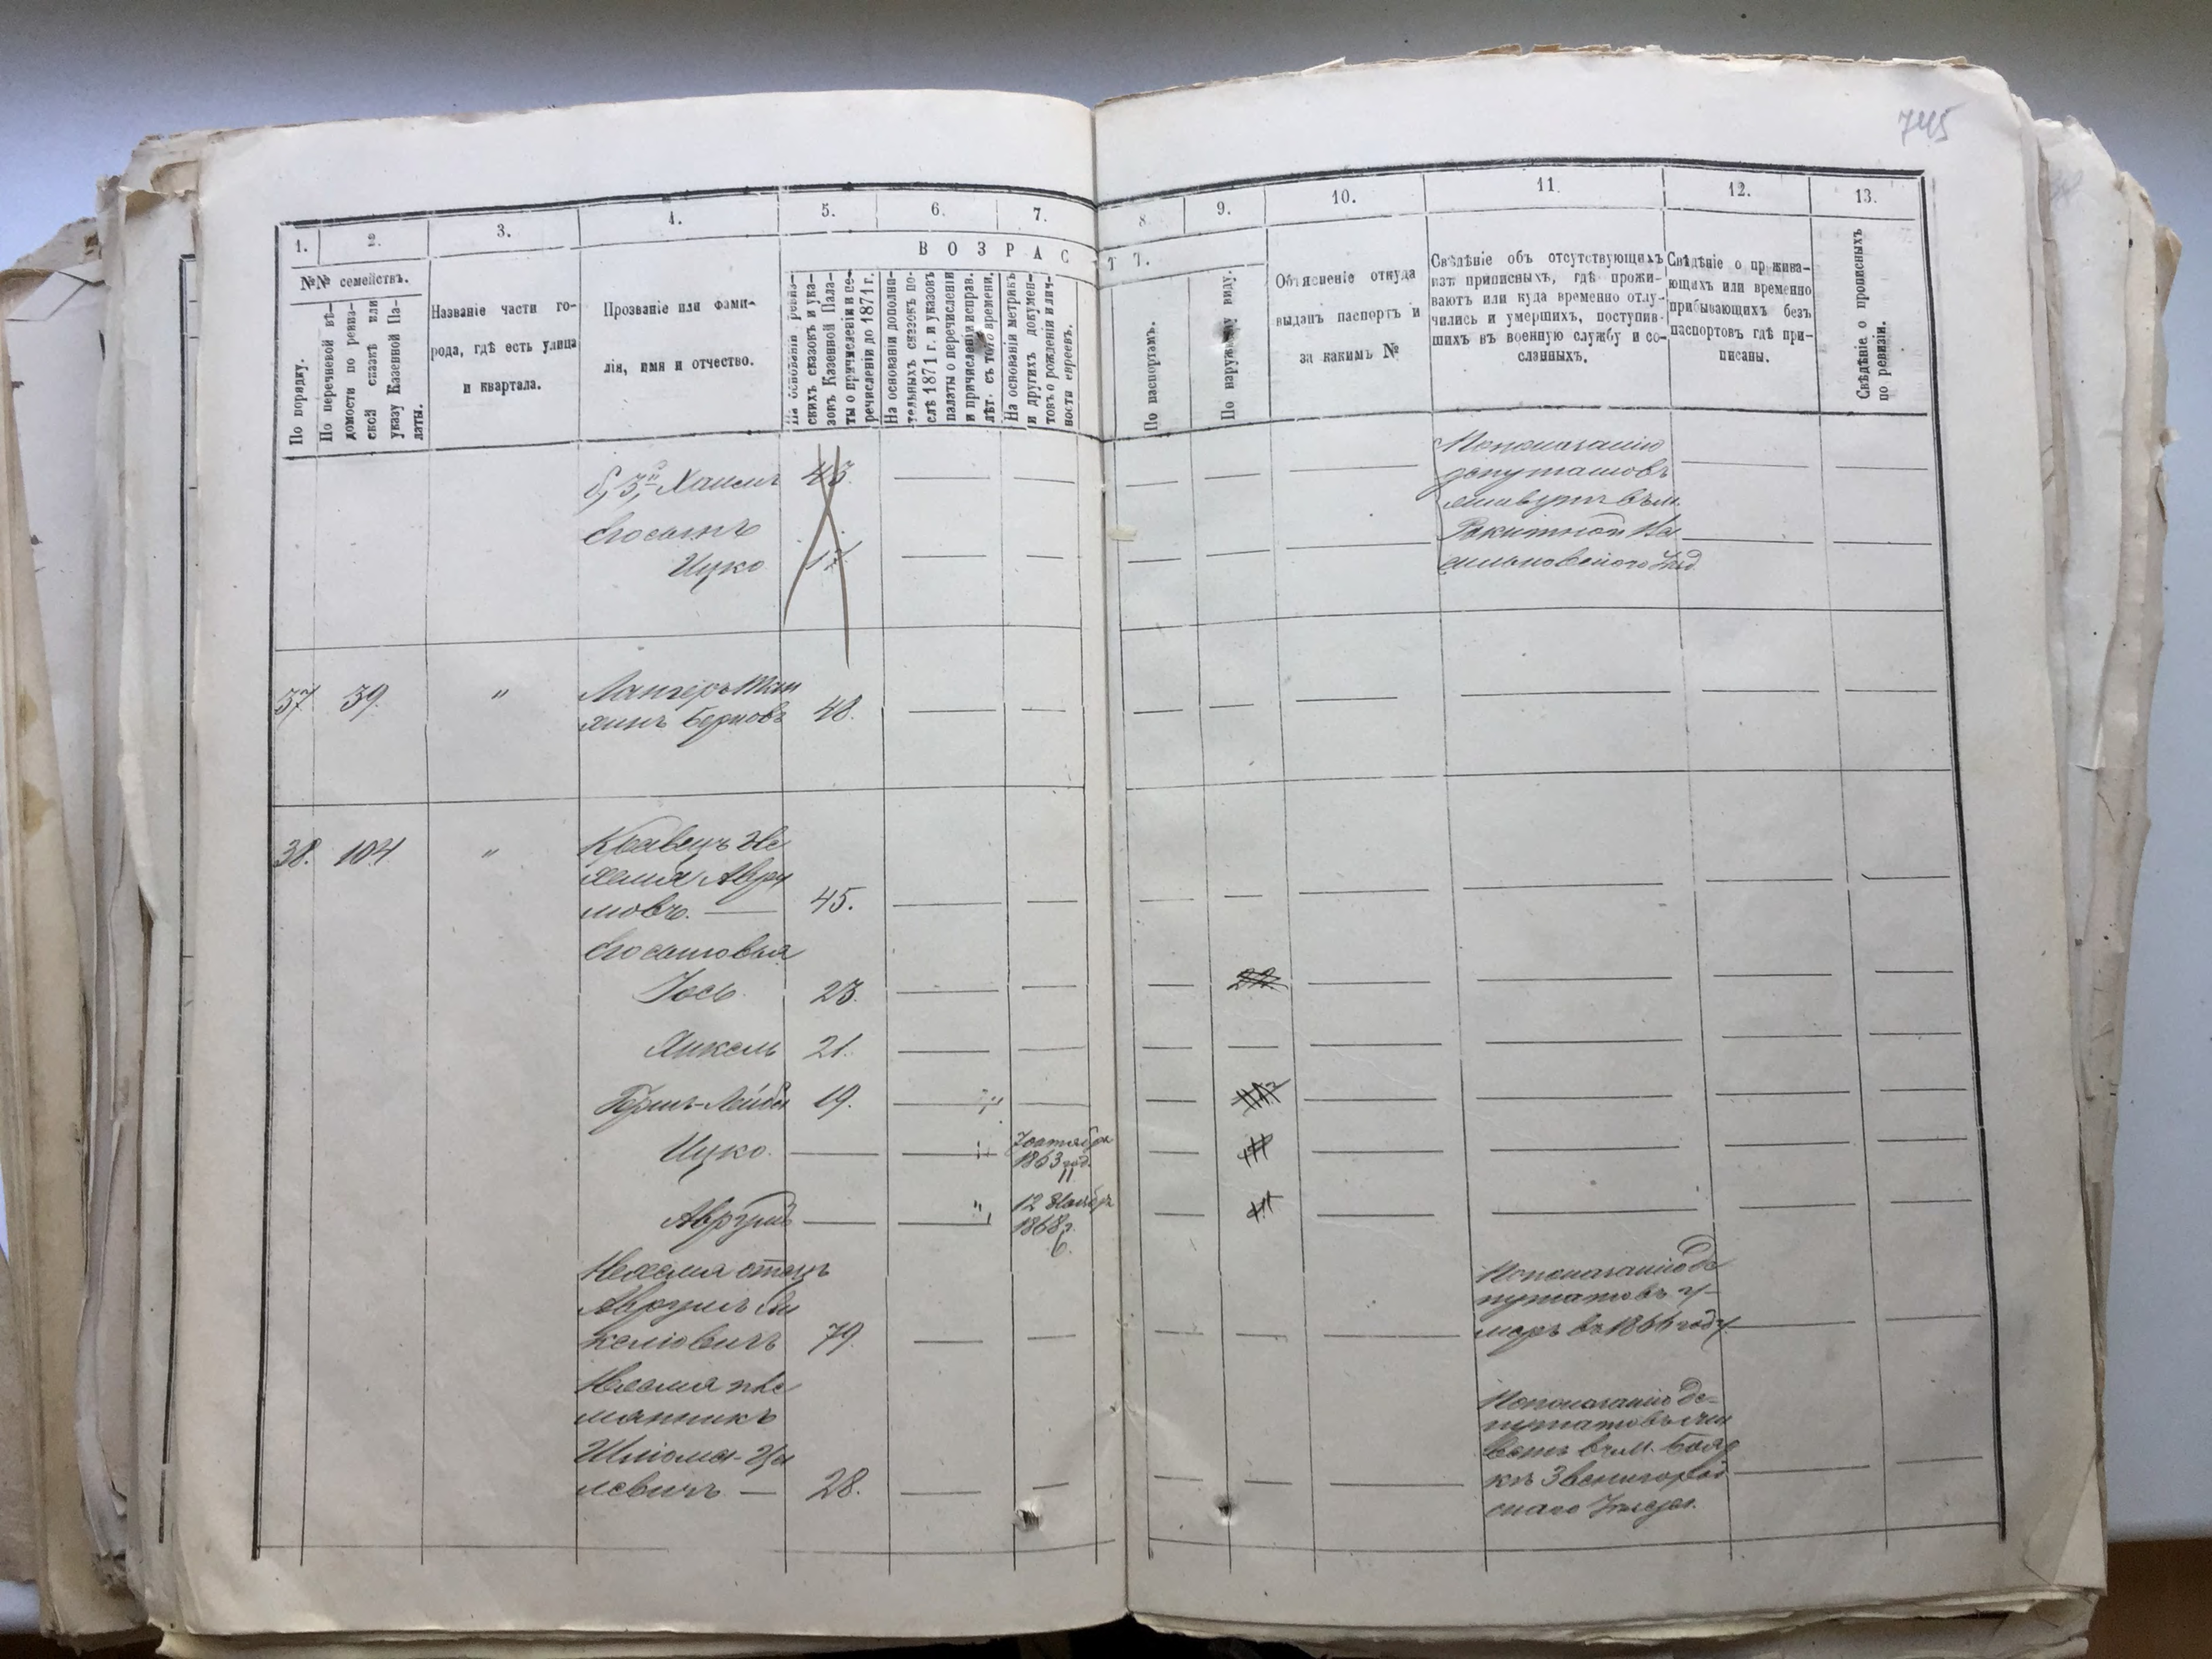 745
1.
2.
3.
4.
5.
6.
7.
8.
9.
10.
11.
12.
13.
ВОЗРАСТ
Т.
№№ семействъ.
По порядку.
По перечневой вѣ-
домости по ревиз-
ской сказкѣ или
указу Казенной Па-
латы.
Названіе части го-
рода, гдѣ есть улица
и квартала.
Прозваніе или фами-
лія, имя и отчество.
На основаніи ревиз-
скихъ сказокъ и ука-
зокъ Казенной Пала-
ты о причисленіи и пе-
речисленіи до 1871 г.
На основаніи дополни-
тельныхъ сказокъ по-
слѣ 1871 г. и указовъ
палаты о перечисленіи
и причисленіи исправ.
лѣт. съ того времени.
На основаніи метрикъ
и другихъ докумен-
товъ о рожденіи и лич-
ности евреевъ.
По паспортамъ.
По наружному виду.
Объясненіе откуда
выданъ паспортъ и
за какимъ №
Свѣдѣніе объ отсутствующихъ
изъ приписныхъ, гдѣ прожи-
ваютъ или куда временно отлу-
чились и умершихъ, поступив-
шихъ въ военную службу и со-
сланныхъ.
Свѣдѣніе о прожива-
ющихъ или временно
прибывающихъ безъ
паспортовъ гдѣ при-
писаны.
Свѣдѣніе о прописныхъ
по ревизіи.
Хаимъ 43.
Его сынъ
Ицко 17
Попоказанію
депутатовъ
живутъ въ м.
Ракитной Ва
сильковского Уѣзд
37 39. "
Берковъ 48.
38. 104 "
Кравецъ Не
хемія Авру
мовъ. — 45.
Его сыновья
Іось. 23. 22
Янкель 21.
Герш-Лейба 19.
Ицко. 7 октября
1863 год.
11
Аврумъ 12 Ноября
1868 г.
6.
Нехемія отецъ
Аврумъ Ян
келіовичъ 79.
Попоказанію де
путатовъ у-
меръ въ 1866 году.
Нехемія пле
мянникъ
Шліома-Ца
левичъ — 28.
Попоказанію де-
путатовъ жи
ветъ въ м. Бояр
къ Звенигород
скаго Уѣзда.